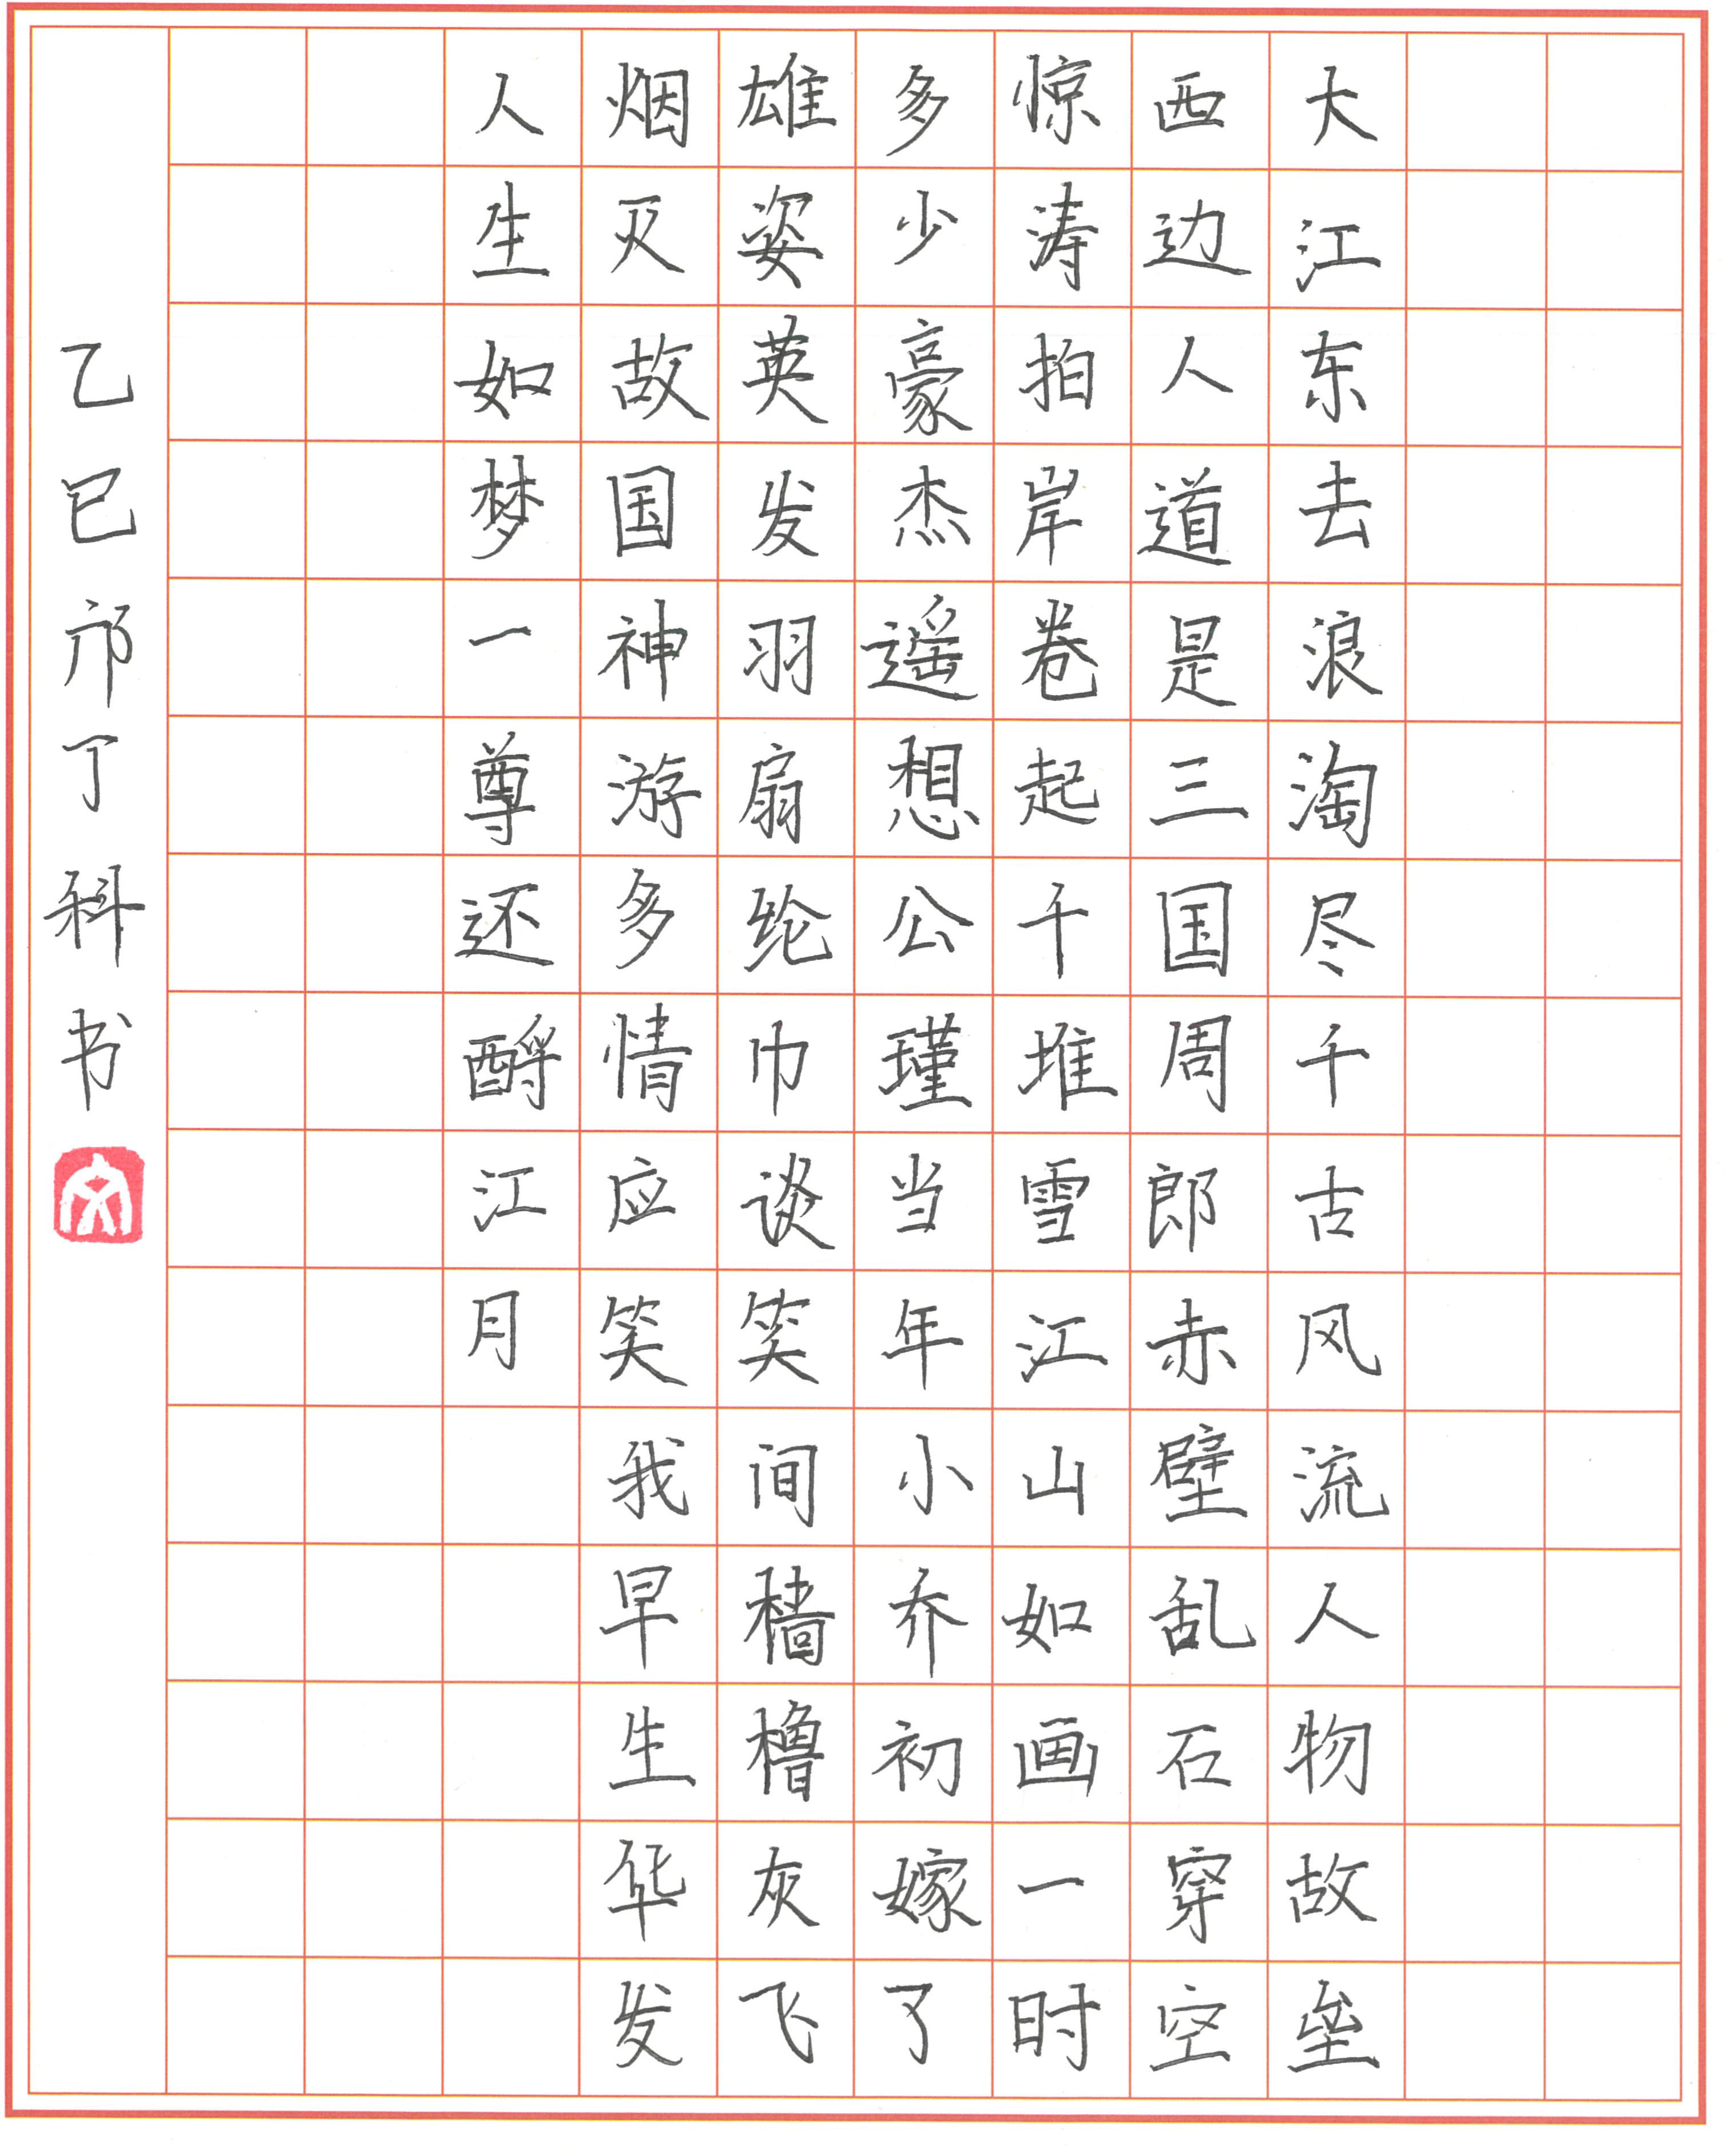 大江东去浪淘尽千古风流人物故垒
西边人道是三国周郎赤壁乱石穿空
惊涛拍岸卷起千堆雪江山如画一时
多少豪杰遥想公瑾当年小乔初嫁了
雄姿英发羽扇纶巾谈笑间樯橹灰飞
烟灭故国神游多情应笑我早生华发
人生如梦一尊还酹江月
乙巳丁科书